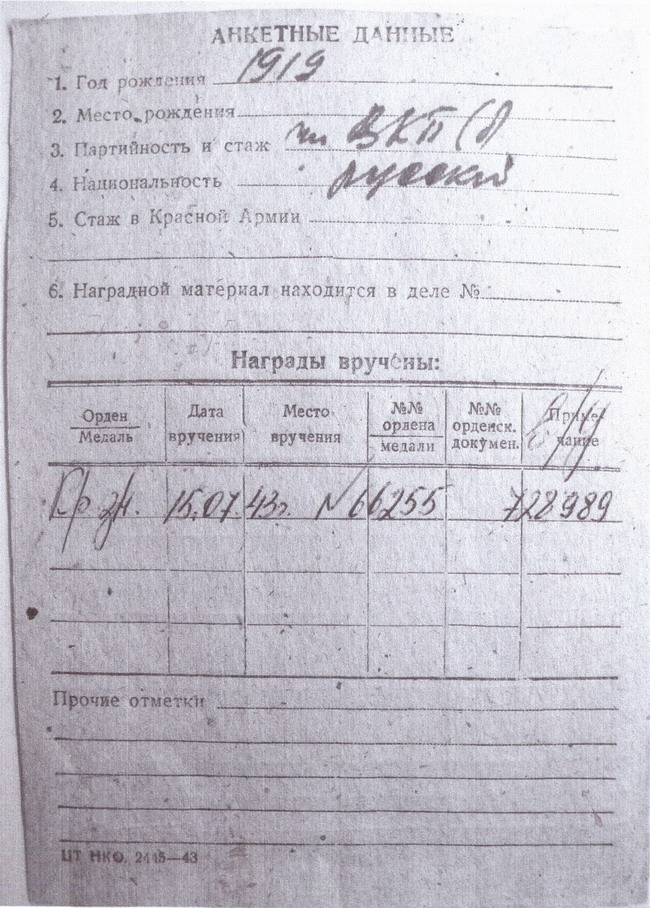 АНКЕТНЫЕ ДАННЫЕ
1. Год рождения 1919
2. Место рождения
3. Партийность и стаж чл ВКП(б)
4. Национальность русский
5. Стаж в Красной Армии
6. Наградной материал находится в деле №
Награды вручены:
Орден Медаль Дата вручения Место вручения №№ ордена медали №№ орденск. докумен. Приме- чание
Кр зв. 15.07 43г. №66255 728989
Прочие отметки
ЦТ НКО. 2445—43